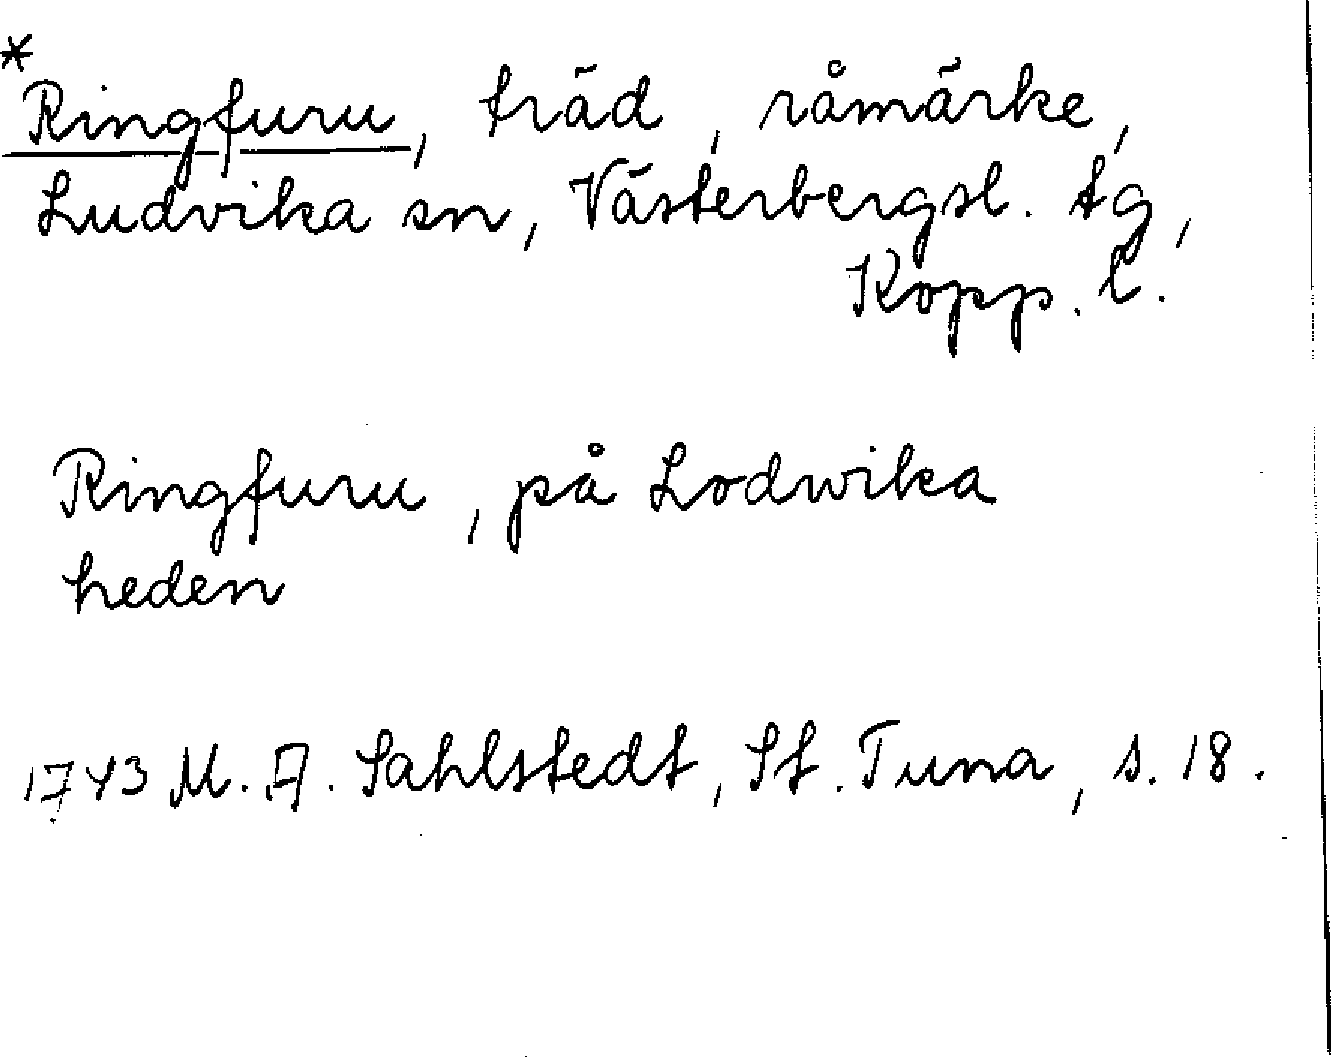 *
Ringfuru, träd, råmärke,
Ludvika sn, Västerbergsl. tg,
Kopp. l.
Ringfuru, på Lodwika
heden
1743 M. A. Sahlstedt, St. Tuna, s. 18.